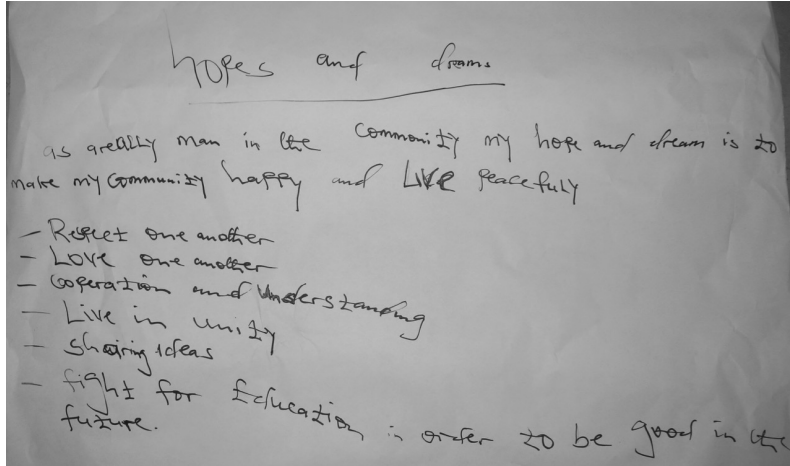 hopes and dreams
as areally man in the Community my hope and dream is to
make my Community happy and Live peacefuly
- Respect one another
- Love one another
- Cooperation and Understanding
- Live in unity
- Sharing ideas
- fight for Education in order to be good in the
future.